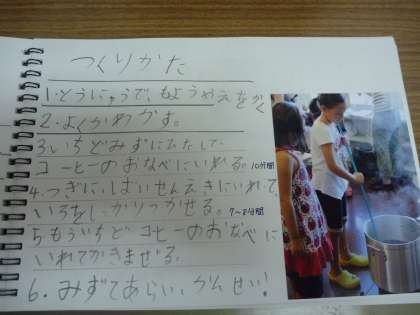 つくりかた
1.とうにゅうで、もようやえをかく
2.よくかわかす。
3.いちどみずにひたして
コーヒーのおなべにいれる。10分間
4.つぎに、ばいせんえきにいれて、
いろをしっかりつかせる。7~8分間
5もういちどコヒーのおなべに
いれてかきまぜる。
6.みずであらい、かんせい!